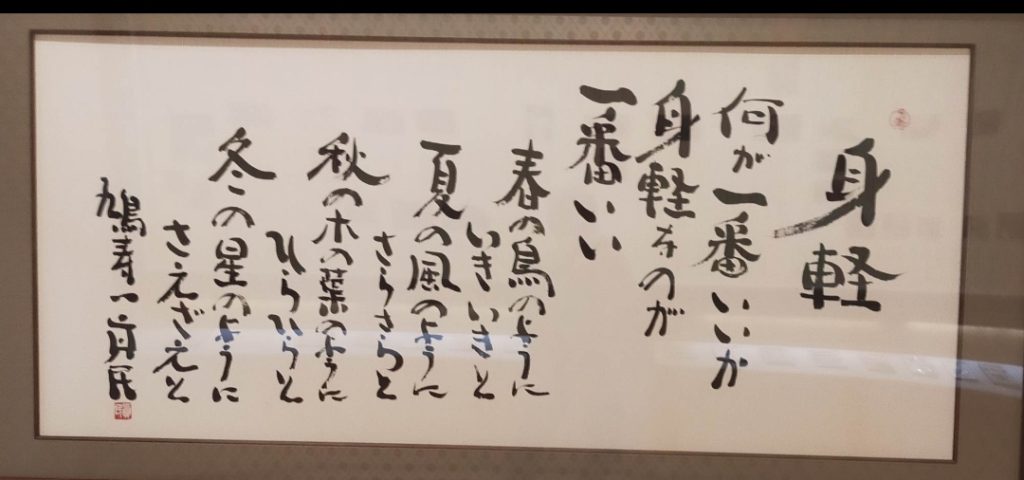 身軽
何が一番いいか
身軽なのが
一番いい
春の鳥のように
いきいきと
夏の風のように
さらさらと
秋の木の葉のように
ひらひらと
冬の星のように
さえざえと
鳩寿 真民